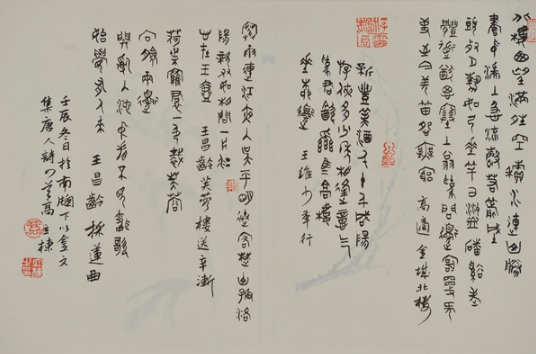 北樓西望滿晴空積水連山勝
畫中湍上急流聲若箭城
頭殘月勢如弓垂竿已羨磻溪老
體道猶思塞上翁為問邊庭更何事
至今羌笛怨無窮 高適 金城北樓
新豐美酒斗十千咸陽
遊俠多少年相逢意氣
為君飲繫馬高樓
垂柳邊 王維 少年行
寒雨連江夜入吳平明送客楚山孤洛
陽親友如相問一片冰心
在玉壺 王昌齡 芙蓉樓送辛漸
荷葉羅裙一色裁芙蓉
向臉兩邊
開亂入池中看不見聞歌
始覺有人來 王昌齡 採蓮曲
壬辰冬日於南下以金文
集唐人詩四首 高玉棟